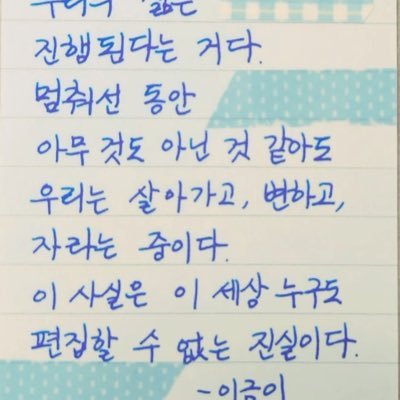 우리의 삶은
진행된다는 거다.
멈춰선 동안
아무 것도 아닌 것 같아도
우리는 살아가고, 변하고,
자라는 중이다.
이 사실은 이 세상 누구도
편집할 수 없는 진실이다.
-이금이